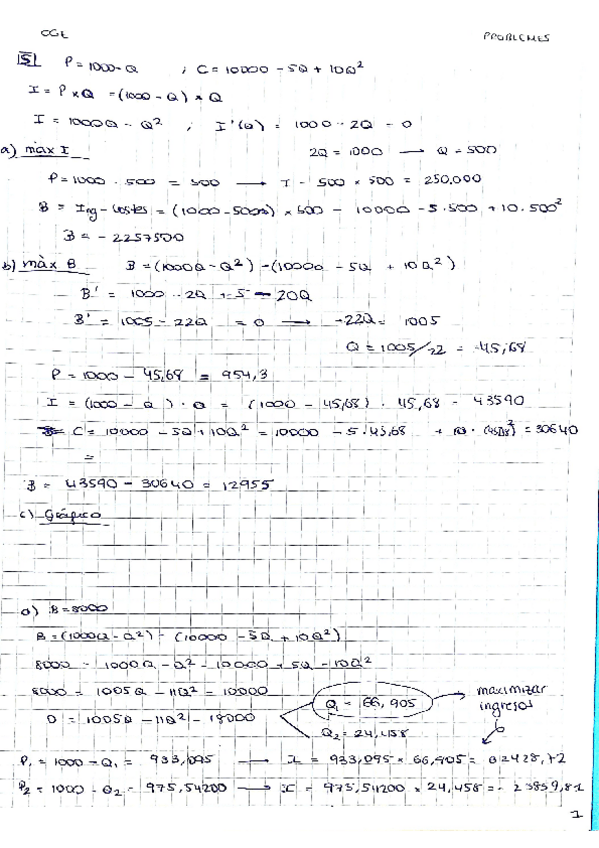 CGE
PROBLEMES
5 P = 1000-Q ; C = 10000 - 5Q + 10Q²
I = P × Q = (1000 - Q) × Q
I = 1000Q - Q² ; I'(Q) = 1000 - 2Q = 0
a) màx I 2Q = 1000 → Q = 500
P = 1000 - 500 = 500 → I = 500 × 500 = 250.000
B = Ing - Costes = (1000 - 500) × 500 - 10000 - 5·500 + 10·500²
B = -2257500
b) màx B B = (1000Q - Q²) - (10000 - 5Q + 10Q²)
B' = 1000 - 2Q + 5 - 20Q
B' = 1005 - 22Q = 0 → -22Q = 1005
Q = 1005/22 = 45,68
P = 1000 - 45,68 = 954,3
I = (1000 - Q) · Q = (1000 - 45,68) · 45,68 = 43590
C = 10000 - 5Q + 10Q² = 10000 - 5·45,68 + 10·(45,68)² = 30640
=
B = 43590 - 30640 = 12955
c) Gráfico
d) B = 8000
B = (1000Q - Q²) - (10000 - 5Q + 10Q²)
8000 = 1000Q - Q² - 10000 + 5Q - 10Q²
8000 = 1005Q - 11Q² = 10000
0 = 1005Q - 11Q² - 18000
Q₁ = 66,905 → maximizar ingresos
Q₂ = 24,458
P₁ = 1000 - Q₁ = 933,095 → I = 933,095 × 66,905 = 62428,72
P₂ = 1000 - Q₂ = 975,54200 → I = 975,54200 × 24,458 = 23859,81
1